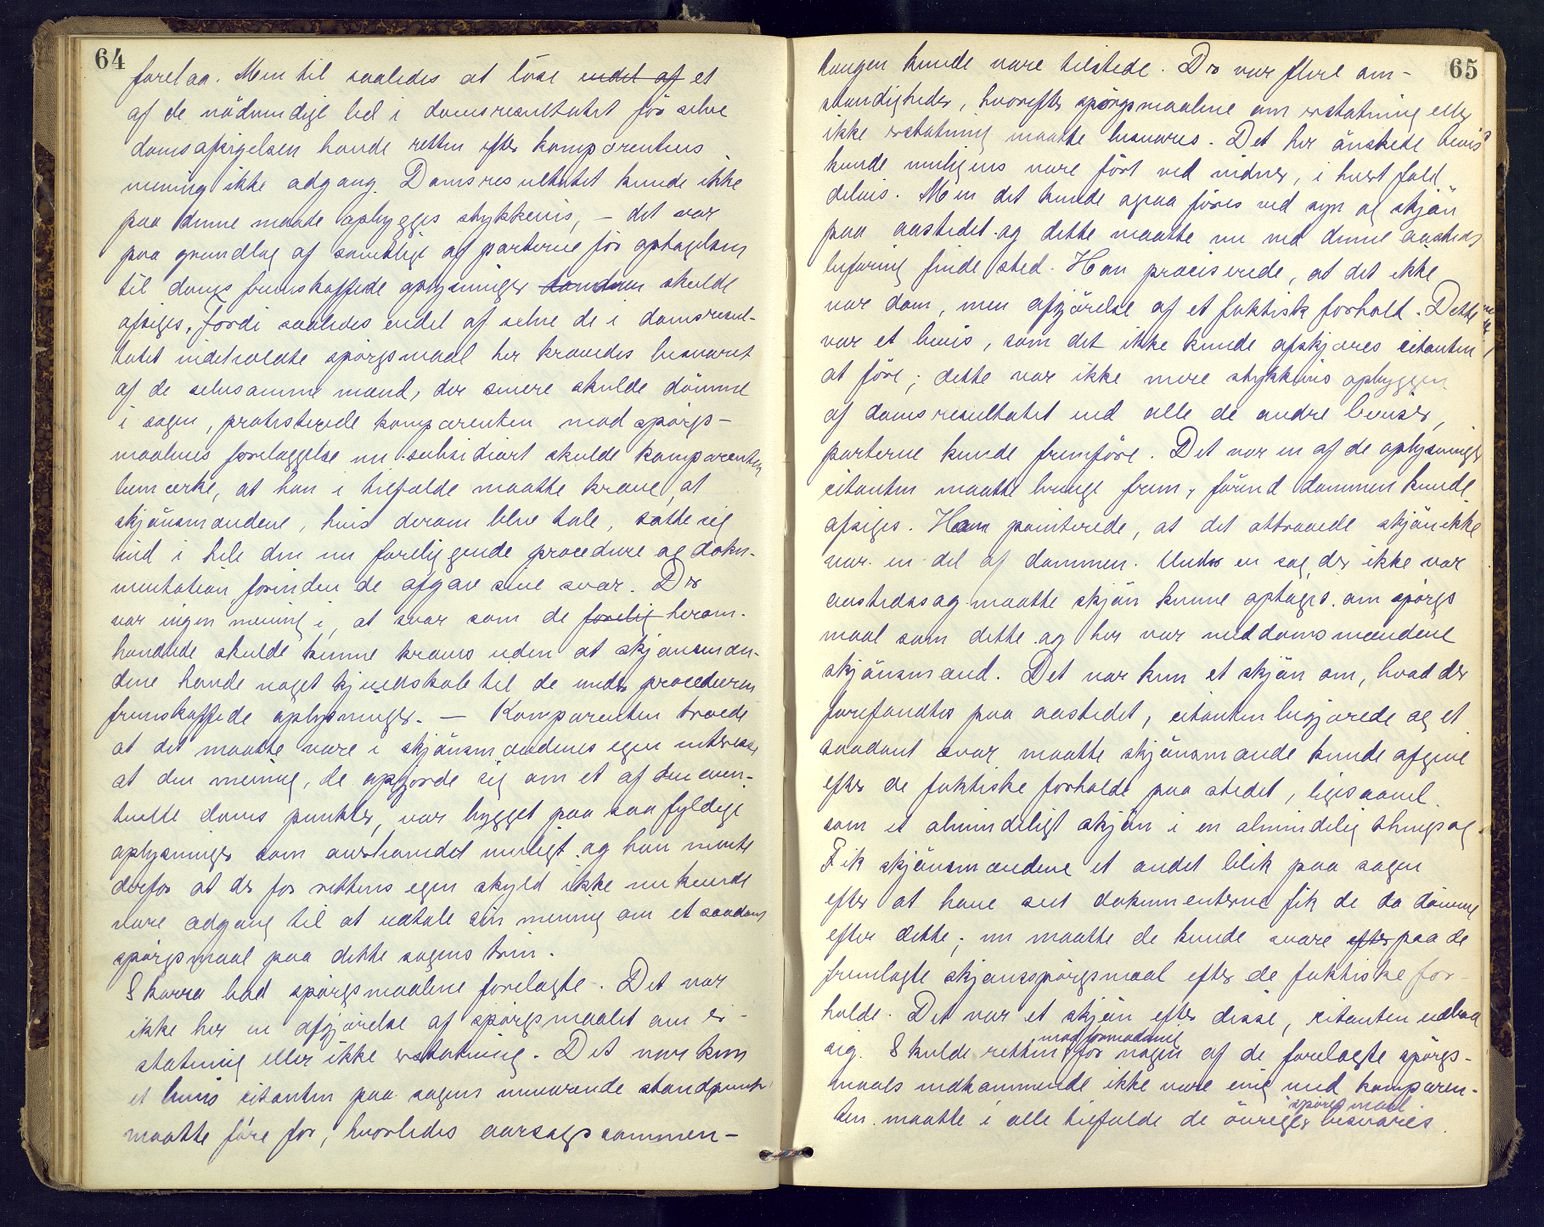 64
forelaa. Men til saaledes at löse endel af et
af de nödvendige led i domsresultatet før selve
domsafsigelsen havde retten efter komparentens
mening ikke adgang. Domsresultatet kunde ikke
paa denne maade opbygges stykkevis, – det var
paa grundlag af samtlige af parterne før optagelsen
til doms fremskaffede oplysninger skulde
afsiges. Fordi saaledes endel af selve de i domsresul-
tatet indeholdte spørgsmaal her krævedes besvaret
af de selvsamme mænd, der senere skulde dömme
i sagen, protesterede komparenten mod spørgs-
maalenes foreleggelse nu. Subsidiært skulde komparenten
bemærke, at han i tilfælde maatte kræve, at
skjönsmændene, hvis derom blev tale, satte sig
ind i hele den nu foreliggende procedure og doku-
mentation forinden de afgav sine svar. Der
var ingen mening i, at svar som de forelig herom-
handlede skulde kunne kræves uden at skjönsmæn-
dene havde noget kjendskab til de under proceduren
fremskaffede oplysninger. – Komparenten troede
at det maatte være i skjönsmændenes egen interesse,
at den mening, de opgjorde sig om et af den even-
tuelle doms punkter, var bygget paa saa fyldige
oplysninger som overhovedet muligt og han mente
derfor at der for rettens egen skyld ikke nu kunde
være adgang til at udtale sin mening om et saadant
spørgsmaal paa dette sagens trin.
Skarra bad spørgsmaalene forelagte. Det var
ikke her en afgjörelse af spørgsmaalet om er-
statning eller ikke erstatning. Det var kun
et bevis citanten paa sagens nuværende standpunkt
maatte føre for, hvorledes aarsagssammen-
65
hængen kunde være tilstede. Der var flere om-
stændigheder, hvorefter spørgsmaalene om erstatning eller
ikke erstatning maatte besvares. Det her önskede bevis
kunde muligens være ført ved vidner, i hvert fald
delvis. Men det kunde ogsaa føres ved syn og skjön
paa aastedet og dette maatte nu ved denne aasteds
befaring finde sted. Han præciserede, at det ikke
var dom, men afgjörelse af et faktisk forhold. Dette
var et bevis, som det ikke kunde afskjæres citanten
at føre; dette var ikke mere stykkevis opbyggen
af domsresultatet end alle de andre beviser,
parterne kunde fremføre. Det var en af de oplysninger
citanten maatte bringe frem, førend dommen kunde
afsiges. Han pointerede, at det attraaede skjön ikke
var en del af dommen. Under en sag, der ikke var
aastedssag maatte skjön kunne optages om spörgs
maal som dette og her var meddomsmændene
skjönsmænd. Det var kun et skjön om, hvad der
forefandtes paa aastedet, citanten begjærede og et
saadant svar maatte skjönsmænde kunde afgive
efter de faktiske forholde paa stedet, ligesaavel
som et almindeligt skjön i en almindelig thingsag.
Fik skjönsmændene et andet blik paa sagen
efter at have set dokumenterne fik de da dömme
efter dette; nu maatte de kunde svare efter paa de
fremlagte skjönsspørgsmaal efter de faktiske for-
holde. Det var et skjön efter disse, citanten udbad
sig. Skulde retten mod formodning for nogen af de forelagte spørgs-
maals vedkommende ikke være enig med komparen-
ten maatte i alle tilfælde de övrige spørgsmaal besvares.